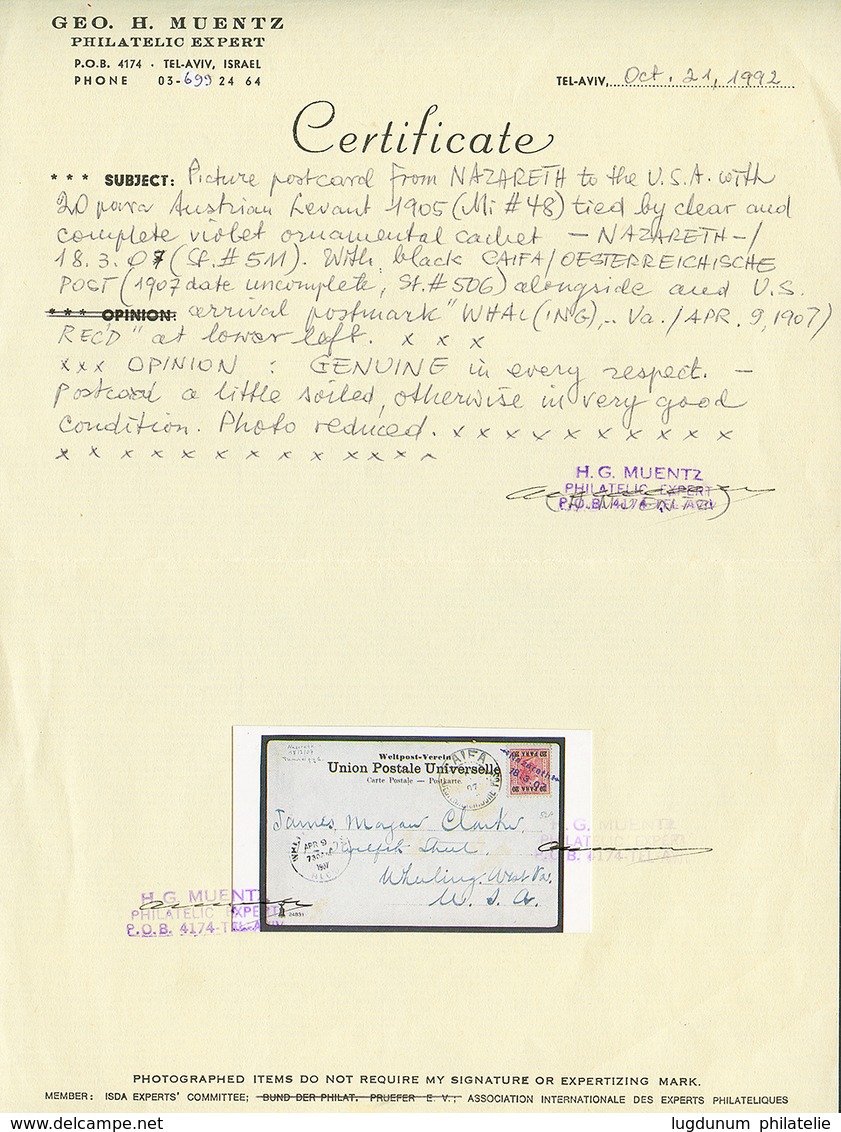 GEO. H. MUENTZ
PHILATELIC EXPERT
P.O.B. 4174 · TEL-AVIV, ISRAEL
PHONE 03-699 24 64
TEL-AVIV, Oct. 21, 1992
Certificate
* * * SUBJECT: Picture postcard from NAZARETH to the U.S.A. with
20 para Austrian Levant 1905 (Mi # 48) tied by clear and
complete violet ornamental cachet - NAZARETH - /
18.3.07 (St. # 511). With black CAIFA/OESTERREICHISCHE
POST (1907 date uncomplete, St. # 506) alongside and U.S.
* * * OPINION: arrival postmark "WHAL(ING), .. Va. / APR. 9, 1907)
REC'D" at lower left. x x x
x x x OPINION : GENUINE in every respect. -
Postcard a little soiled, otherwise in very good
condition. Photo reduced. x x x x x x x x x x
x x x x x x x x x x x x x
H. G. MUENTZ
PHILATELIC EXPERT
P.O.B. 4174-TEL-AVIV
(H. MUENTZ)
Weltpost-Verein
Union Postale Universelle
Carte Postale — Postkarte
CAIFA
07
20 PARA 20
Nazareth
18.3.07
20 PARA 20
James Magaw Clarke,
APR 9
1907
REC'D
Wheeling. West Va.
U. S. A.
24931
H. G. MUENTZ
PHILATELIC EXPERT
P.O.B. 4174-TEL-AVIV
H. G. MUENTZ
PHILATELIC EXPERT
P.O.B. 4174-TEL-AVIV
PHOTOGRAPHED ITEMS DO NOT REQUIRE MY SIGNATURE OR EXPERTIZING MARK.
MEMBER: ISDA EXPERTS' COMMITTEE; BUND DER PHILAT. PRUEFER E. V.; ASSOCIATION INTERNATIONALE DES EXPERTS PHILATELIQUES
www.delcampe.net
lugdunum philatelie